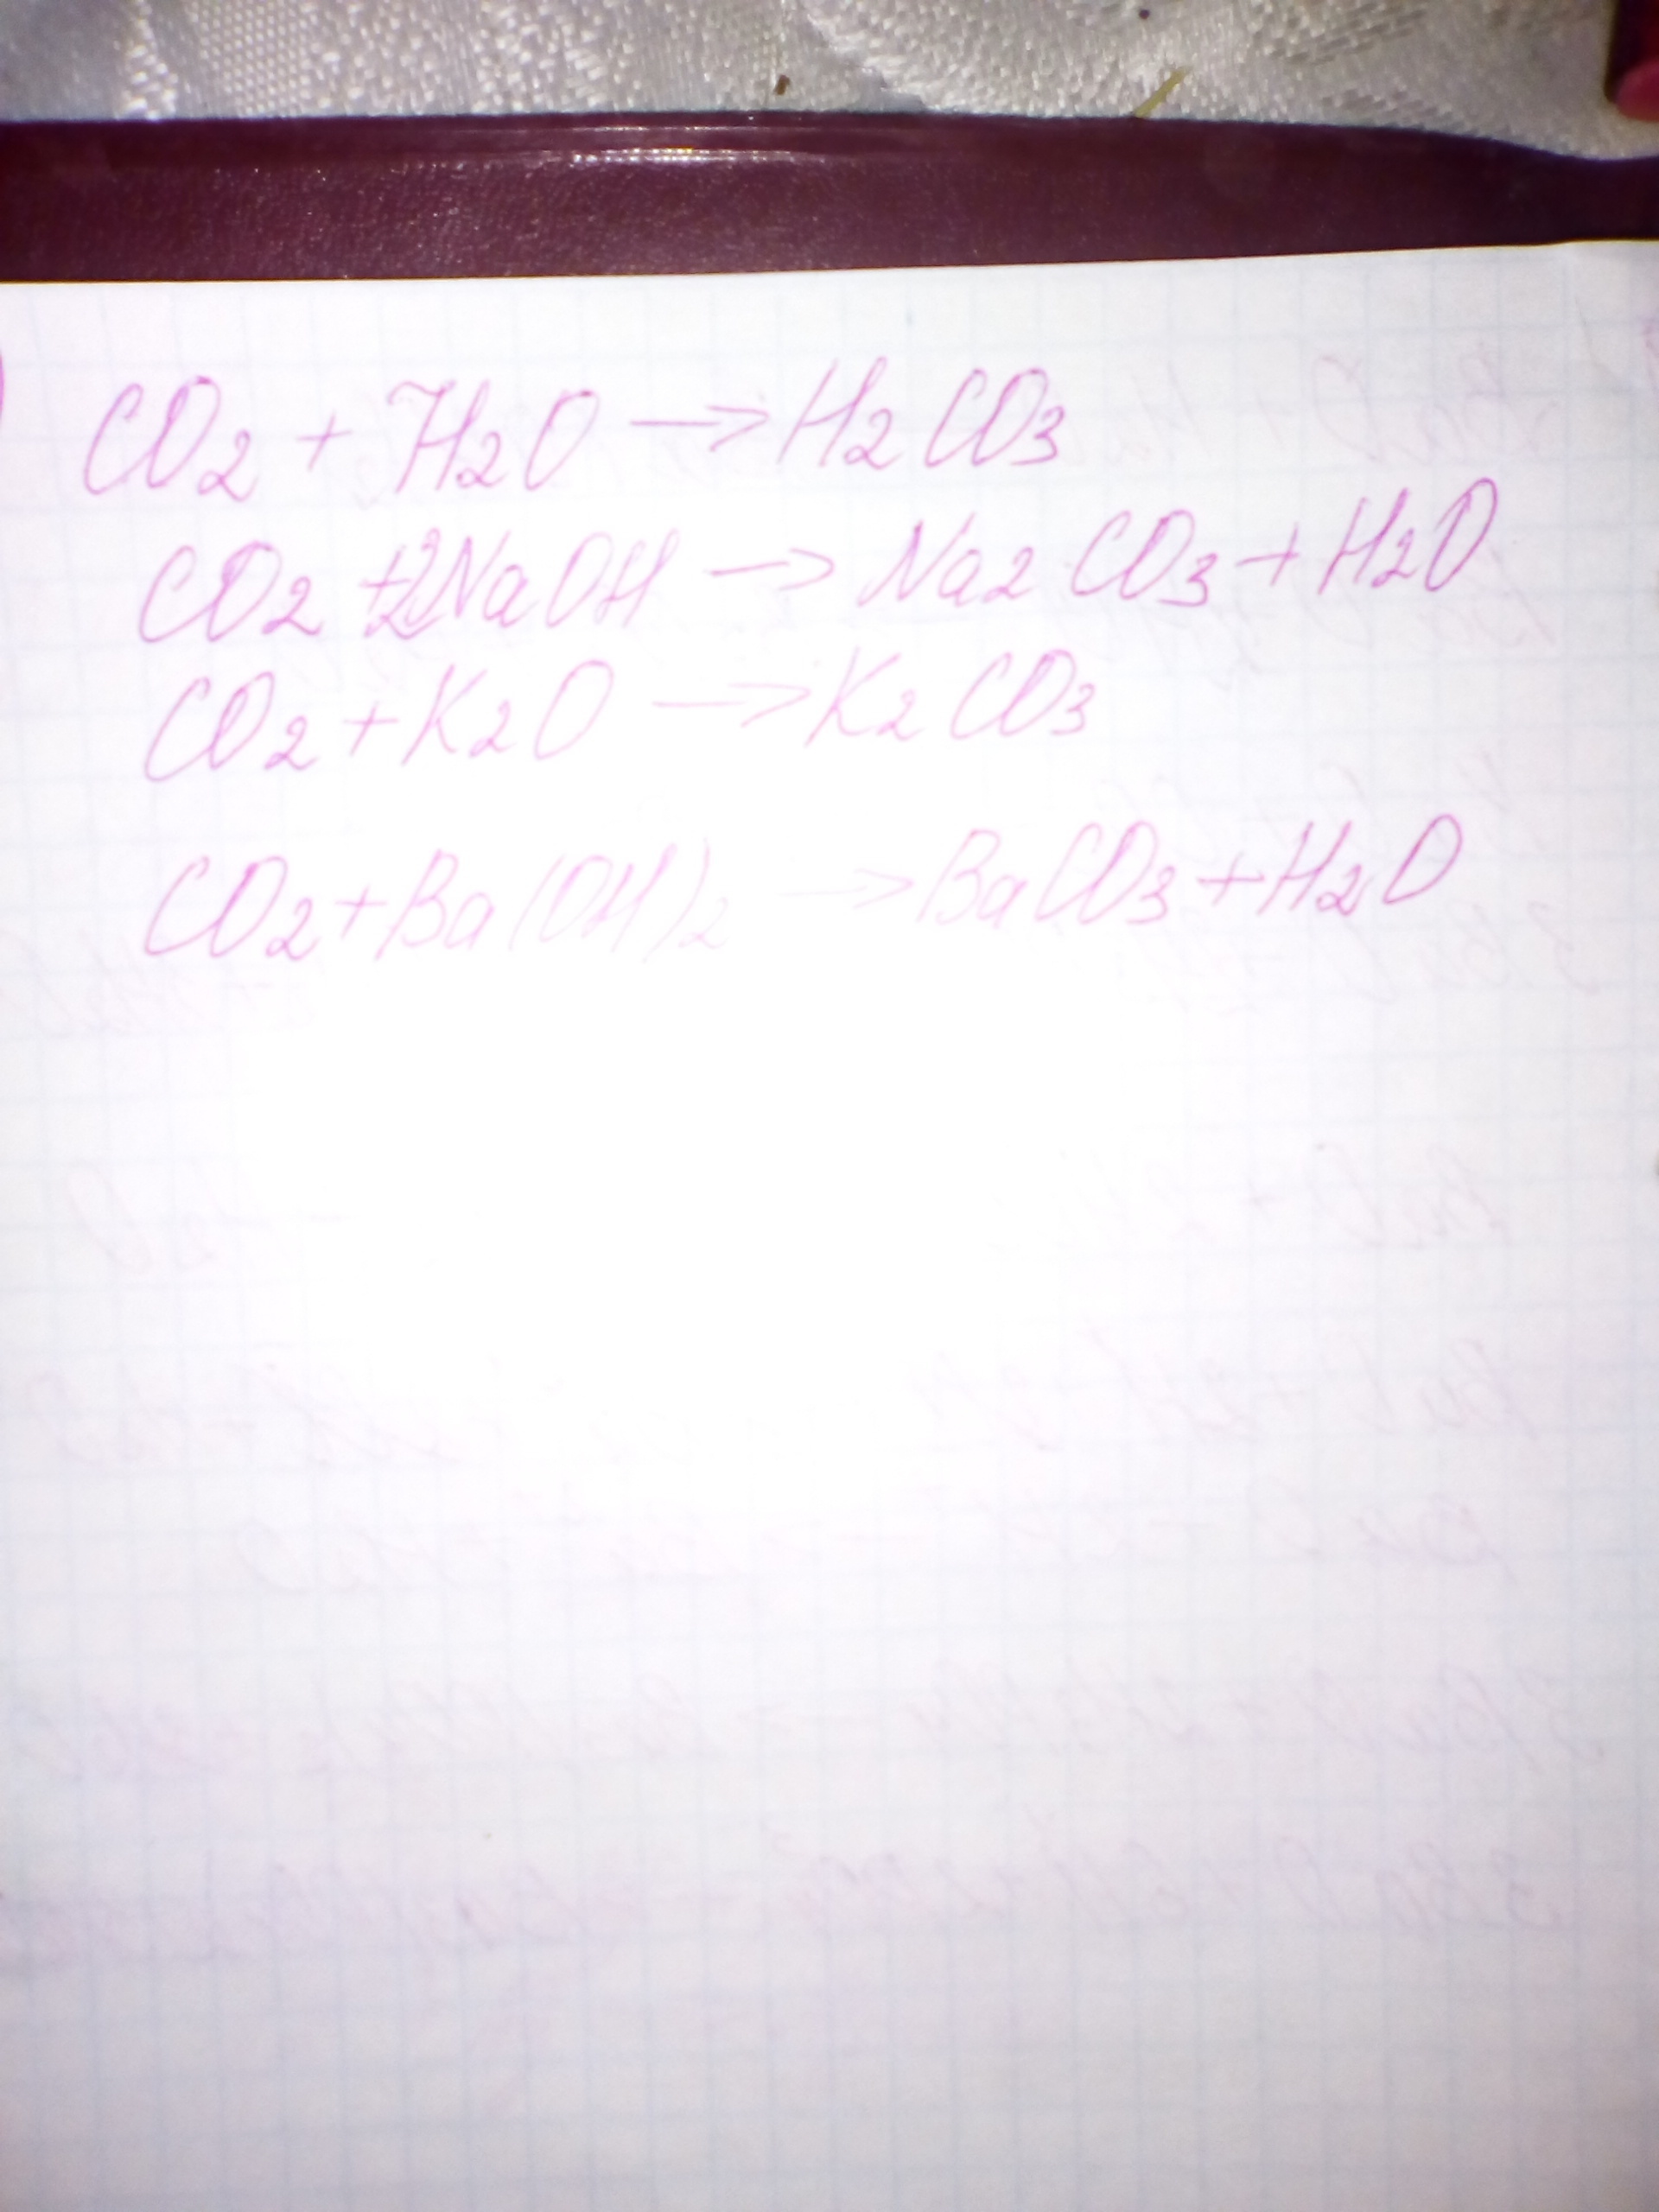 CO2 + H2O → H2CO3
CO2 + 2NaOH → Na2CO3 + H2O
CO2 + K2O → K2CO3
CO2 + Ba(OH)2 → BaCO3 + H2O